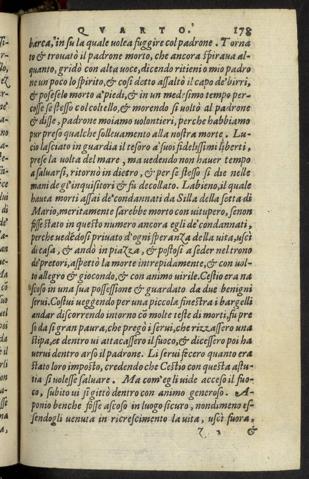 QVARTO. 178
barca, in su la quale volea fuggire col padrone. Torna
to & trouatò il padrone morto, che ancora spiraua al-
quanto, gridò con alta voce, dicendo ritieni o mio padro
ne un poco lo spirito, & così detto assaltò il capo de' birri,
& poseselo morto a' piedi, & in un medesimo tempo per-
cosse se stesso col coltello, & morendo si voltò al padrone
& disse, padrone moiamo volontieri, perche habbiamo
pur preso qualche solleuamento alla nostra morte. Lu-
cio lasciato in guardia il tesoro a' suoi fidelissimi liberti,
prese la volta del mare, ma uedendo non hauer tempo
a saluarsi, ritornò in dietro, & per se stesso si die nelle
mani de gl'inquisitori & fu decollato. Labieno, il quale
hauea morti assai de' condannati da Silla della setta di
Mario, meritamente sarebbe morto con uituperio, se non
fosse stato in questo numero ancora egli de' condennati,
perche uedēdosi priuato d'ogni speranza della vita, uscì
di casa, & andò in piazza, & postosi a seder nel trono
de' pretori, aspettò la morte intrepidamente, & con uol-
to allegro & giocondo, & con animo uirile. Cestio era na
scoso in una sua possessione & guardato da due benigni
serui. Costui ueggendo per una piccola finestra i bargelli
andar discorrendo intorno cō molte teste di morti, fu pre
so da si gran paura, che pregò i serui, che rizzassero una
stipa, et dentro ui attacassero il fuoco, & dicessero poi ha
uerui dentro arso il padrone. Li serui fecero quanto era
stato loro imposto, credendo che Cestio con questa astu-
tia si uolesse saluare. Ma com'egli uide acceso il fuo-
co, subito ui si gittò dentro con animo generoso. A-
ponio benche fosse ascoso in luogo sicuro, nondimeno es-
sendogli uenuta in rincrescimento la vita, uscì fuora,
&